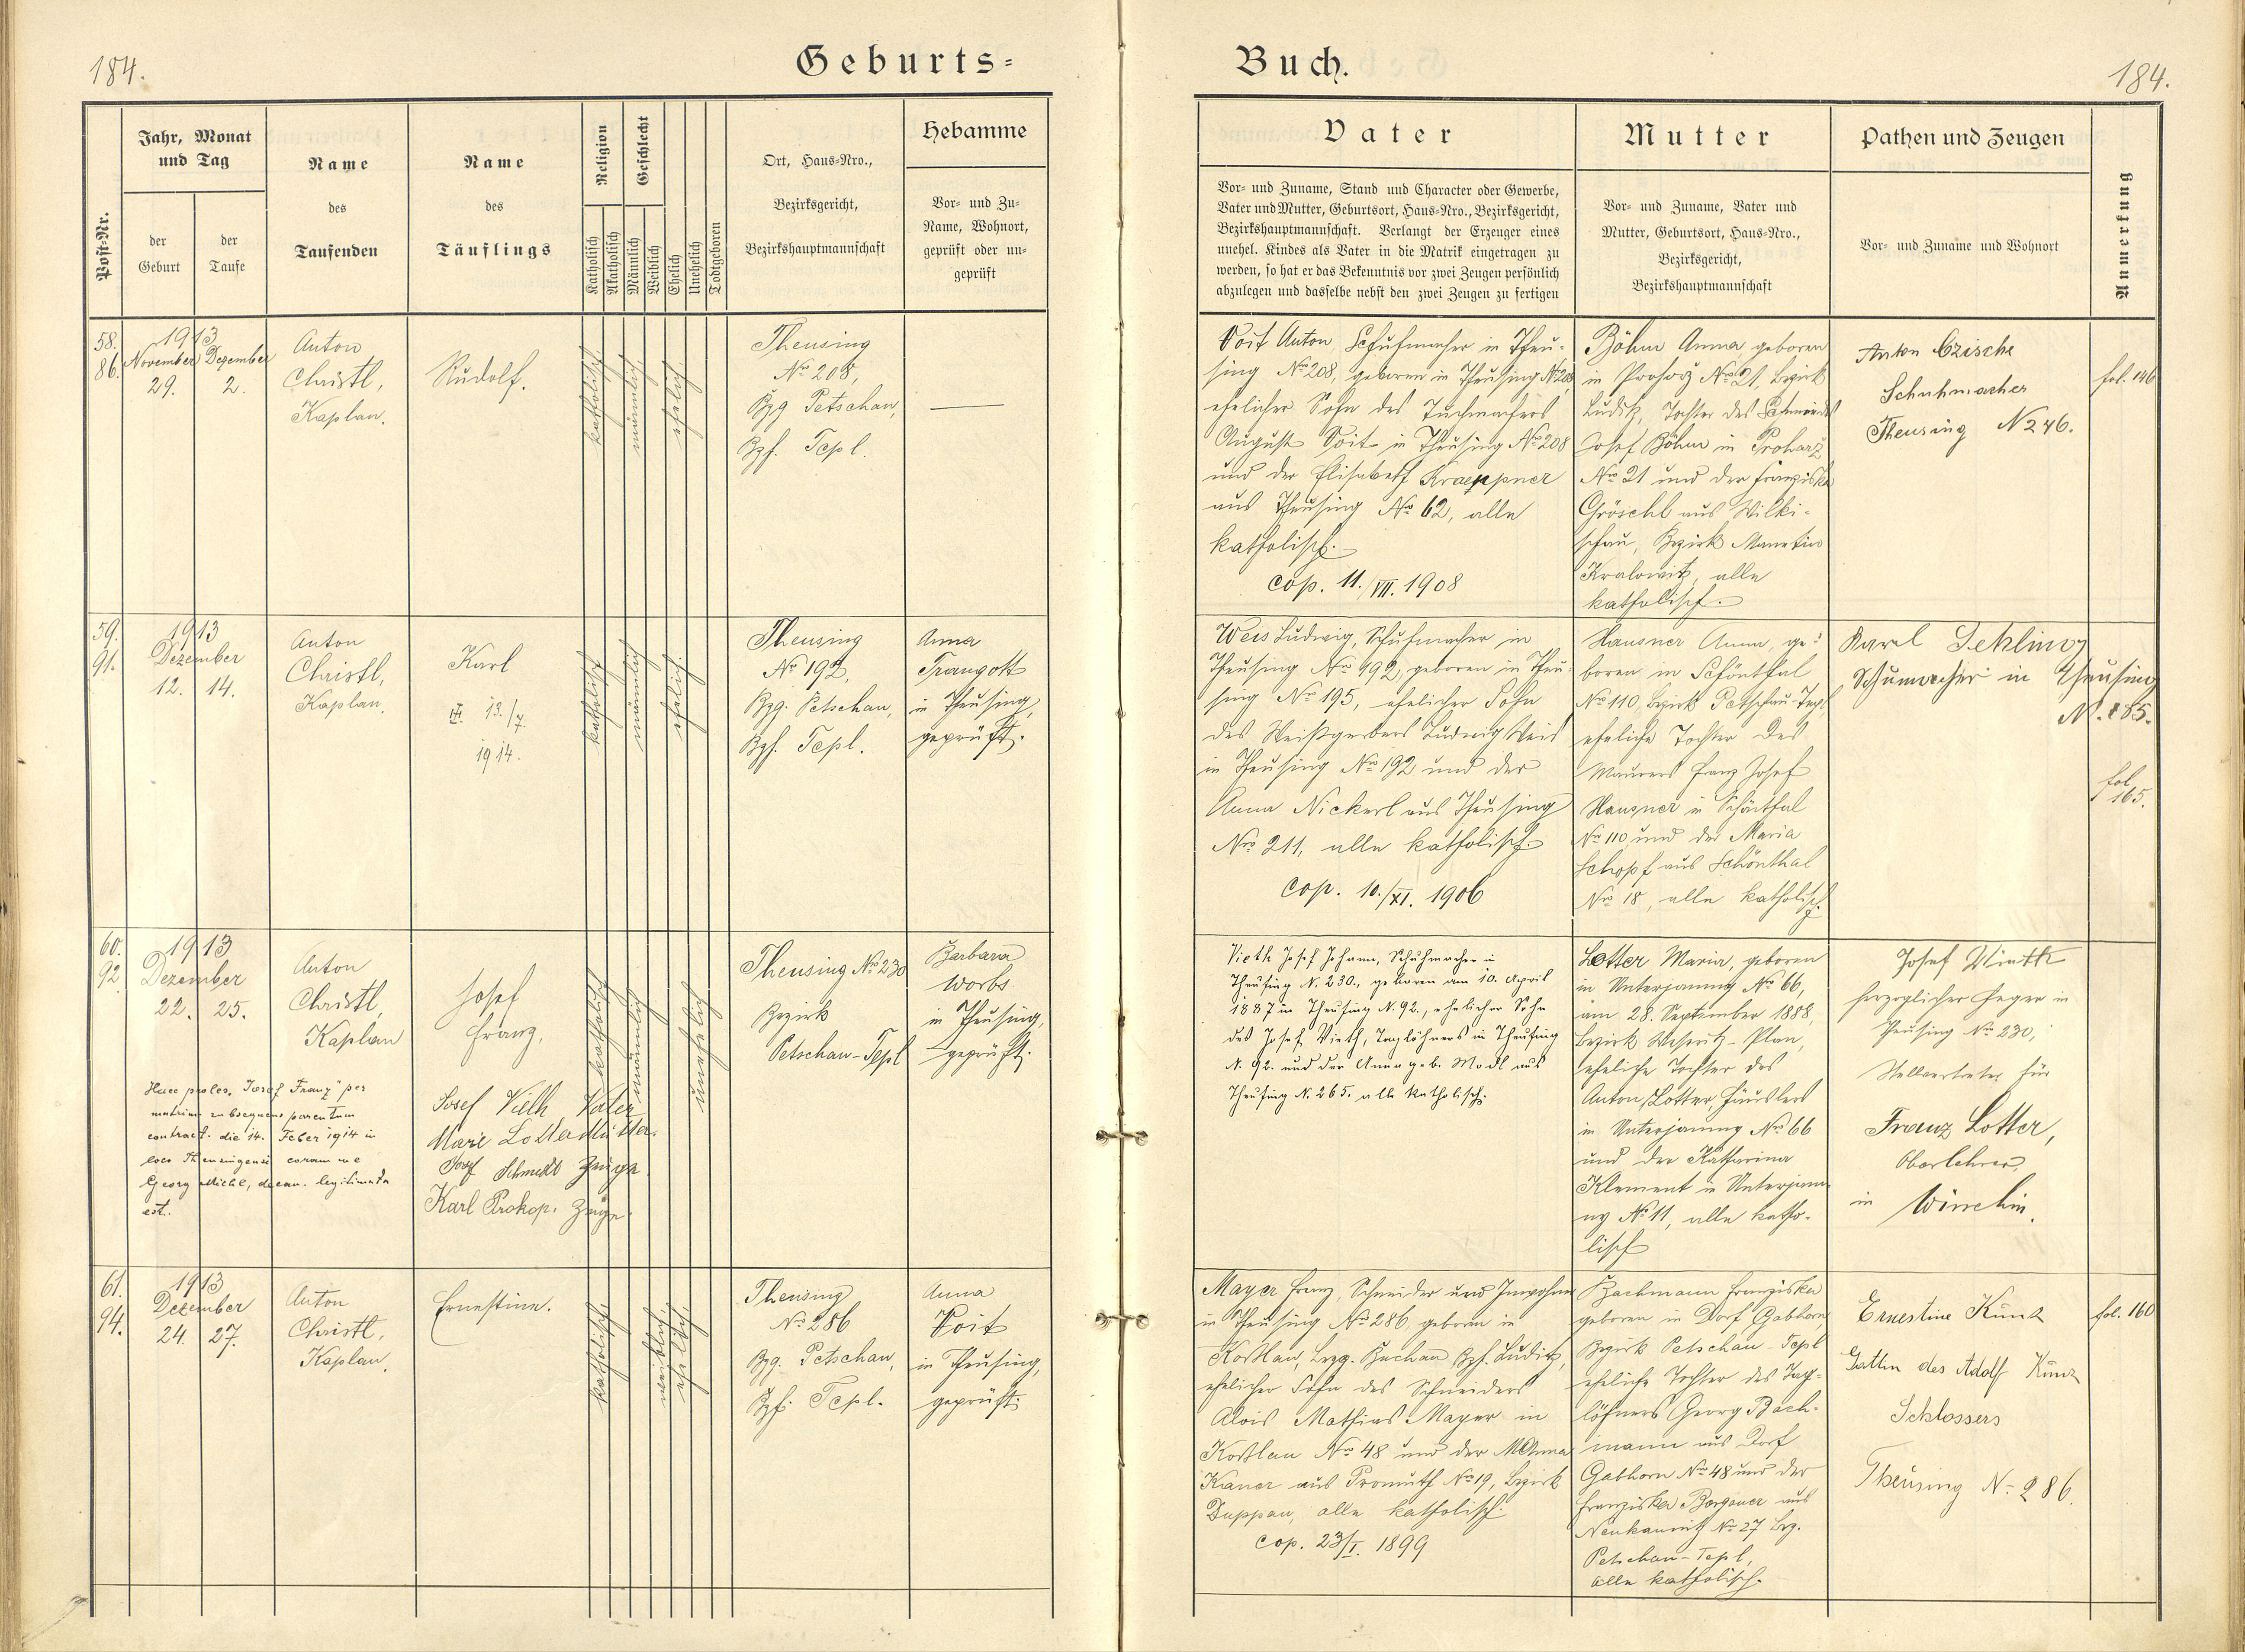 184.
Geburts-
Buch.
184.
Post-Nr.
Jahr, Monat
und Tag
der
Geburt
der
Taufe
Name
des
Taufenden
Name
des
Täuflings
Religion
Katholisch
Akatholisch
Geschlecht
Männlich
Weiblich
Ehelich
Unehelich
Todtgeboren
Ort, Haus-Nro.,
Bezirksgericht,
Bezirkshauptmannschaft
Hebamme
Vor- und Zu-
Name, Wohnort,
geprüft oder un-
geprüft
Vater
Vor- und Zuname, Stand und Character oder Gewerbe,
Vater und Mutter, Geburtsort, Haus-Nro., Bezirksgericht,
Bezirkshauptmannschaft. Verlangt der Erzeuger eines
unehel. Kindes als Vater in die Matrik eingetragen zu
werden, so hat er das Bekenntnis vor zwei Zeugen persönlich
abzulegen und dasselbe nebst den zwei Zeugen zu fertigen
Mutter
Vor- und Zuname, Vater und
Mutter, Geburtsort, Haus-Nro.,
Bezirksgericht,
Bezirkshauptmannschaft
Pathen und Zeugen
Vor- und Zuname und Wohnort
Anmerkung
58.
86.
1913
November Dezember
29. 2.
Anton
Christl,
Kaplan.
Rudolf.
katholisch
männlich
ehelich
Theusing
No 208,
Bzg Petschau,
Bzh. Tepl.
Voit Anton, Schuhmacher in Theu-
sing No 208, geboren in Theusing No 208
ehelicher Sohn des Tuchmachers
August Voit in Theusing No 208
und der Elisabeth Kraeppner
aus Theusing No 62, alle
katholisch.
cop. 11./VII. 1908
Böhm Anna, geboren
in Prohorž No 21, Bezirk
Luditz, Tochter des Schmiedes
Josef Böhm in Prohorž
No 21 und der Franziska
Gröschl aus Wilki-
schau, Bezirk Manetin
Kralowitz, alle
katholisch.
Anton Czische
Schuhmacher
Theusing N 246.
fol. 146
59.
91.
1913
Dezember
12. 14.
Anton
Christl,
Kaplan.
Karl
13./7.
1914.
katholisch
männlich
ehelich
Theusing
No 192,
Bzg. Petschau,
Bzh. Tepl.
Anna
Traugott
in Theusing,
geprüft.
Weis Ludwig, Schuhmacher in
Theusing No 192, geboren in Theu-
sing No 195, ehelicher Sohn
des Weißgerbers Ludwig Weis
in Theusing No 192 und der
Anna Nickerl aus Theusing
No 211, alle katholisch.
cop. 10./XI. 1906
Hausner Anna, ge-
boren in Schönthal
No 110, Bezirk Petschau-Tepl,
eheliche Tochter des
Maurers Franz Josef
Hausner in Schönthal
No 110 und der Maria
Schopf aus Schönthal
No 18, alle katholisch.
Karl
Schumacher in Theusing
N. 185.
fol.
165.
60.
92.
1913
Dezember
22. 25.
Anton
Christl,
Kaplan
Josef
Franz.
katholisch
männlich
unehelich
Theusing No 230
Bezirk
Petschau-Tepl
Barbara
Worbs
in Theusing,
geprüft.
Haec proles, Josef Franz" per
matrim. subsequens parentum
contract. die 14. Feber 1914 in
loco Theusingensi coram me
Georg Michl, decan. legitimata
est.
Josef Vieth Vater
Marie Lotter Mutter.
Josef Schmidt Zeuge
Karl Prokop. Zeuge.
Vieth Josef Johann, Schuhmacher in
Theusing N. 230., geboren am 10. April
1887 in Theusing N. 92., ehelicher Sohn
des Josef Vieth, Taglöhners in Theusing
N. 92. und der Anna geb. Modl aus
Theusing N. 265. alle katholisch.
Lotter Maria, geboren
in Unterjamny No 66,
am 28. September 1888,
Bezirk Weseritz-Plan,
eheliche Tochter des
Anton Lotter Häuslers
in Unterjamny No 66
und der Katharina
Klement in Unterjam-
ny No 11, alle katho-
lisch
Josef Vieth
herzoglicher Heger in
Theusing No 230,
Stellvertreter für
Franz Lotter,
Oberlehrer,
in
61.
94.
1913
Dezember
24. 27.
Anton
Christl,
Kaplan.
Ernestine.
katholisch
weiblich
ehelich
Theusing
No 286
Bzg. Petschau,
Bzh. Tepl.
Anna
Voit
in Theusing,
geprüft.
Mayer Franz, Schneider und Inwohner
in Theusing No 286, geboren in
Koßlau, Bzg. Buchau Bzh. Luditz,
ehelicher Sohn des Schneiders
Alois Mathias Mayer in
Koßlau No 48 und der M. Anna
Kaner aus Promuth No 19, Bezirk
Duppau, alle katholisch.
cop. 23/I. 1899
Bachmann Franziska
geboren in Dorf Gabhorn
Bezirk Petschau-Tepl
eheliche Tochter des Tag-
löhners Georg Bach-
mann aus Dorf
Gabhorn No 48 und der
Franziska Borgauer aus
Neukaunitz No 27 Bzg.
Petschau-Tepl,
alle katholisch.
Ernestine Kunz
Gattin des Adolf Kunz
Schlossers
Theusing No 286.
fol. 160